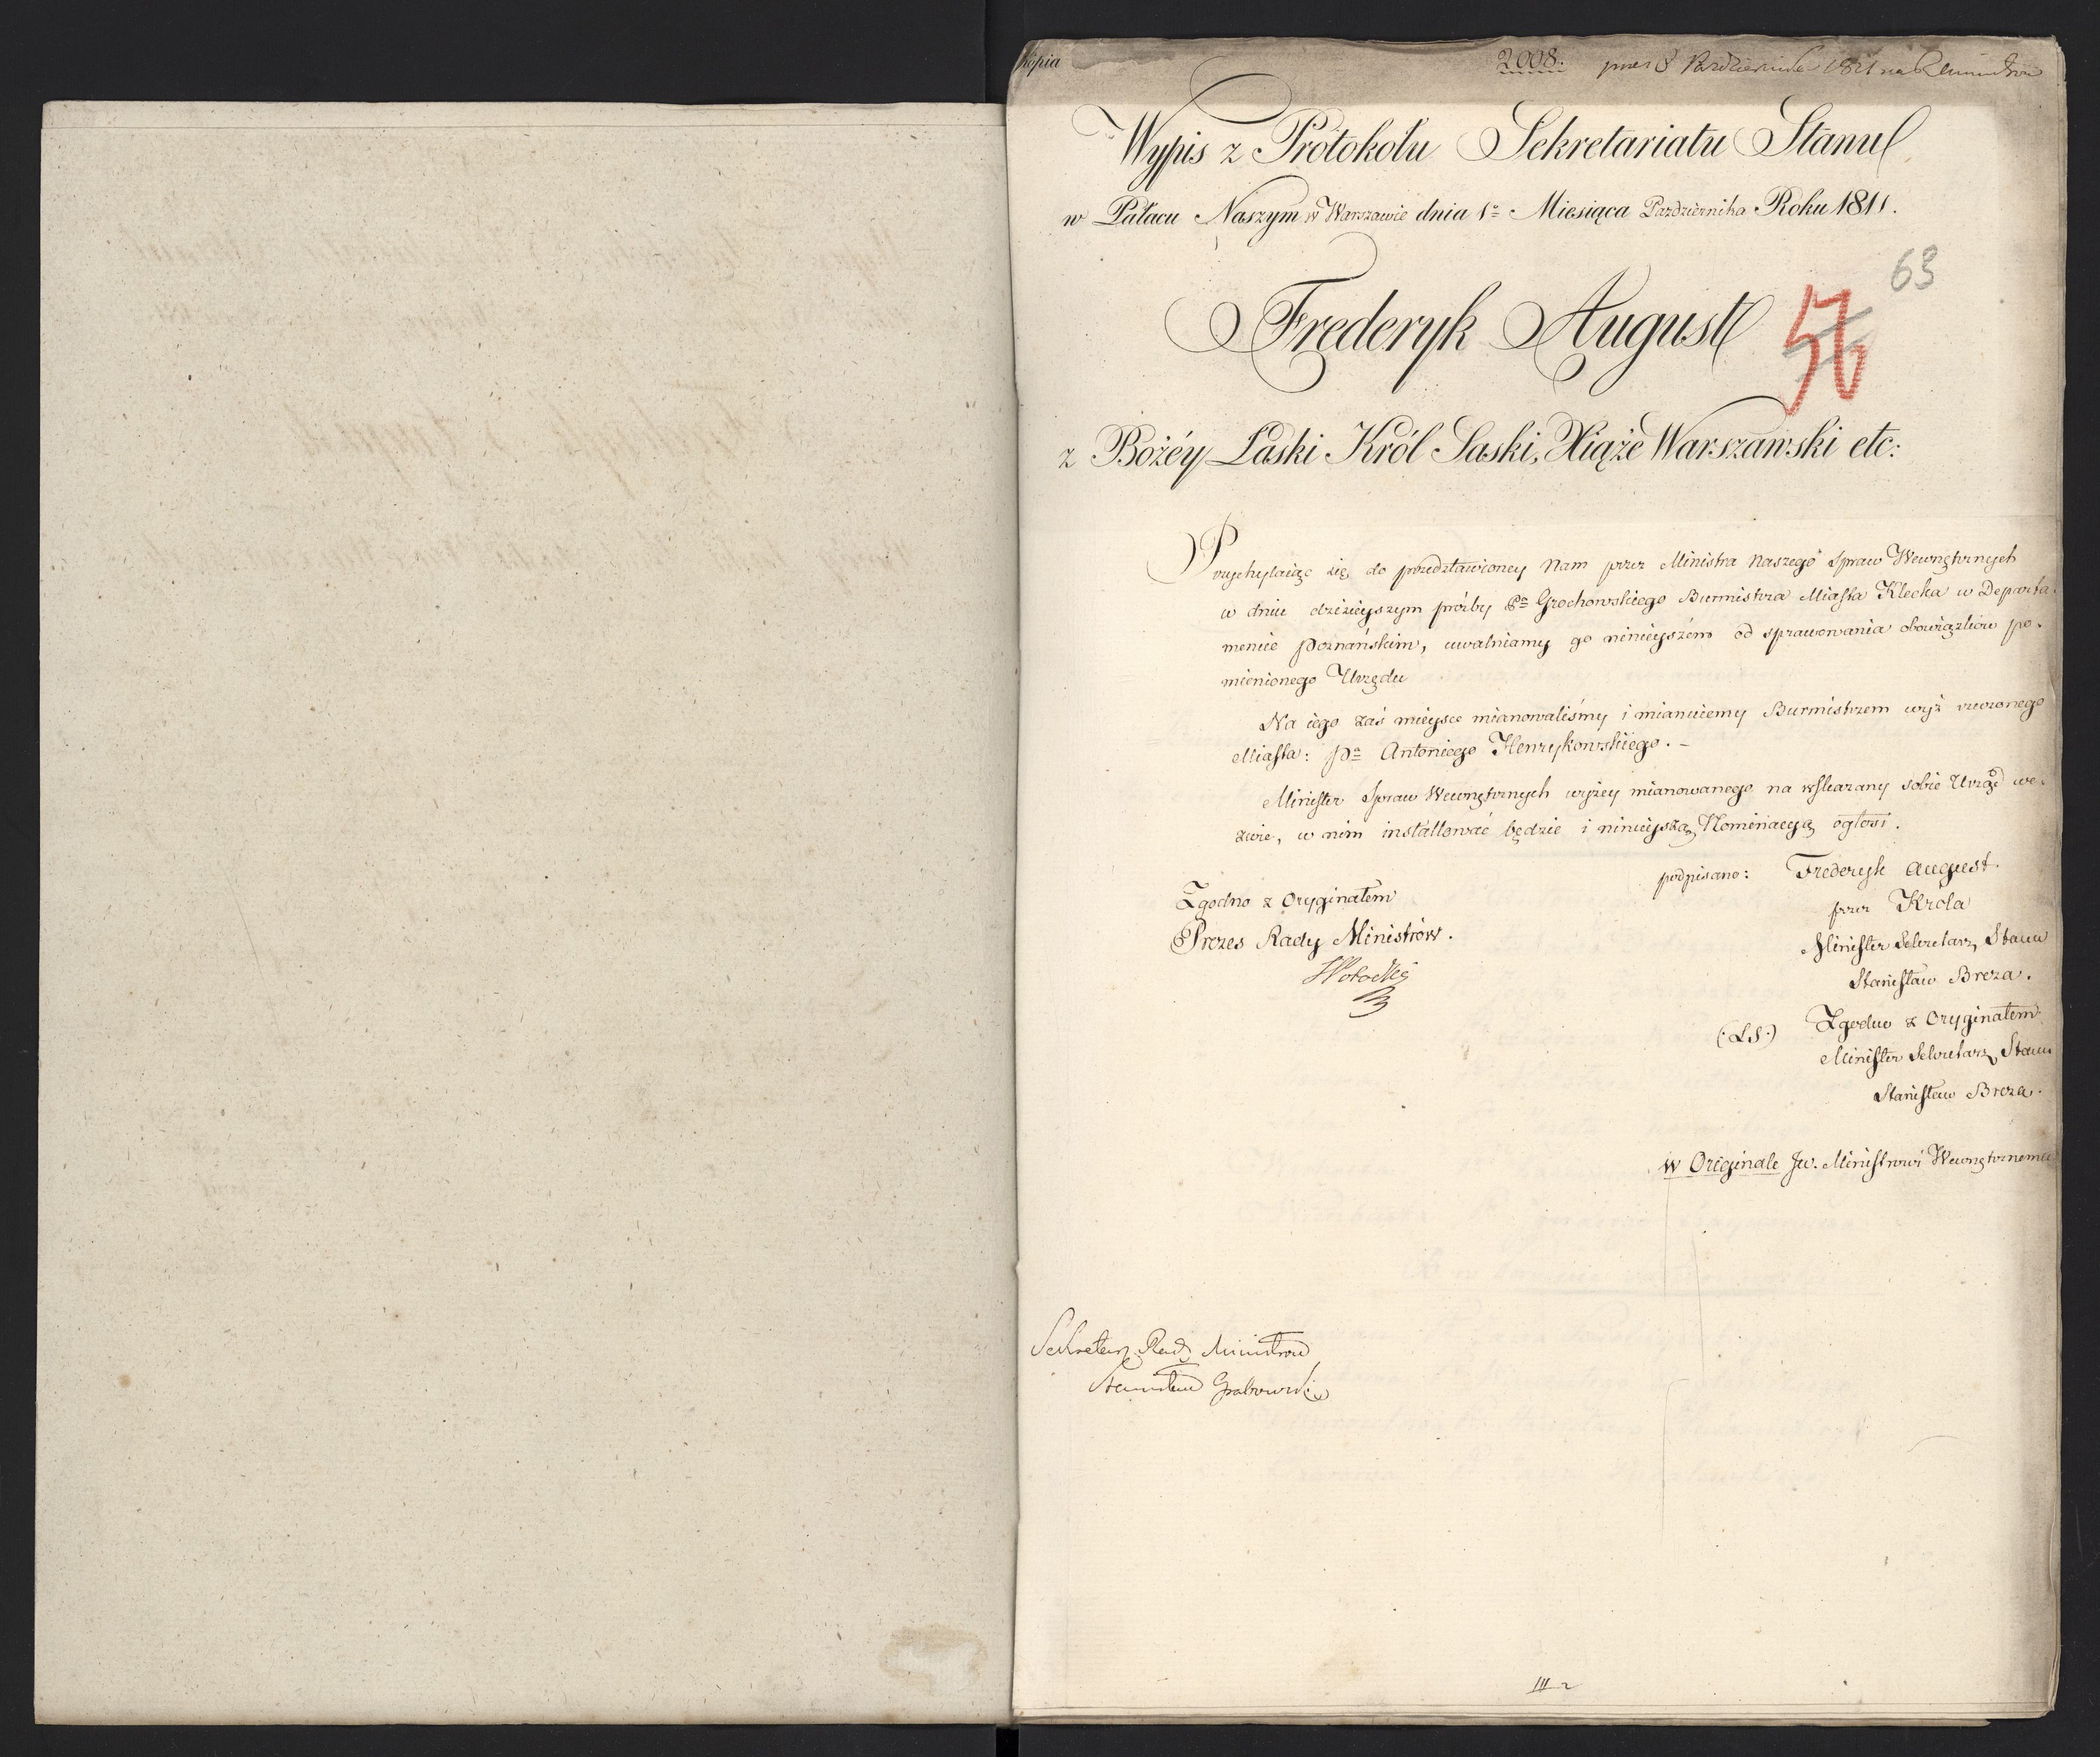 kopia
2008. pres 8 Października 1811 na R. Ministrów
Wypis z Protokołu Sekretariatu Stanu
w Pałacu Naszym w Warszawie dnia 1º Miesiąca Października Roku 1811.
63
Frederyk August
56
z Bożéy Łaski Król Saski, Xiąże Warszawski etc:
Przychylaiąc się do przedstawioney Nam przez Ministra Naszego Spraw Wewnętrznych
w dniu dzisieyszym prośby Pª Grochowskiego Burmistrza Miasta Klecka w Departa-
mencie Poznańskim, uwalniamy go ninieyszém od sprawowania obowiązków po-
mienionego Urzędu
Na iego zaś mieysce mianowaliśmy i mianuiemy Burmistrzem wyż rzeczonego
Miasta: Pª Antoniego Henrykowskiego. –
Minister Spraw Wewnętrznych wyżey mianowanego na wskazany sobie Urząd we-
zwie, w nim installować będzie i ninieyszą Nominacyą ogłosi.
podpisano: Frederyk August.
przez Króla
Minister Sekretarz Stanu
Stanisław Breza.
Zgodno z Oryginałem
Prezes Rady Ministrów.
(LS.) Zgodno z Oryginałem
Minister Sekretarz Stanu
Stanisław Breza.
w Originale Jw. Ministrowi Wewnętrznemu
Sekretarz Rady Ministrów
Stanisław Grabowski
III 2